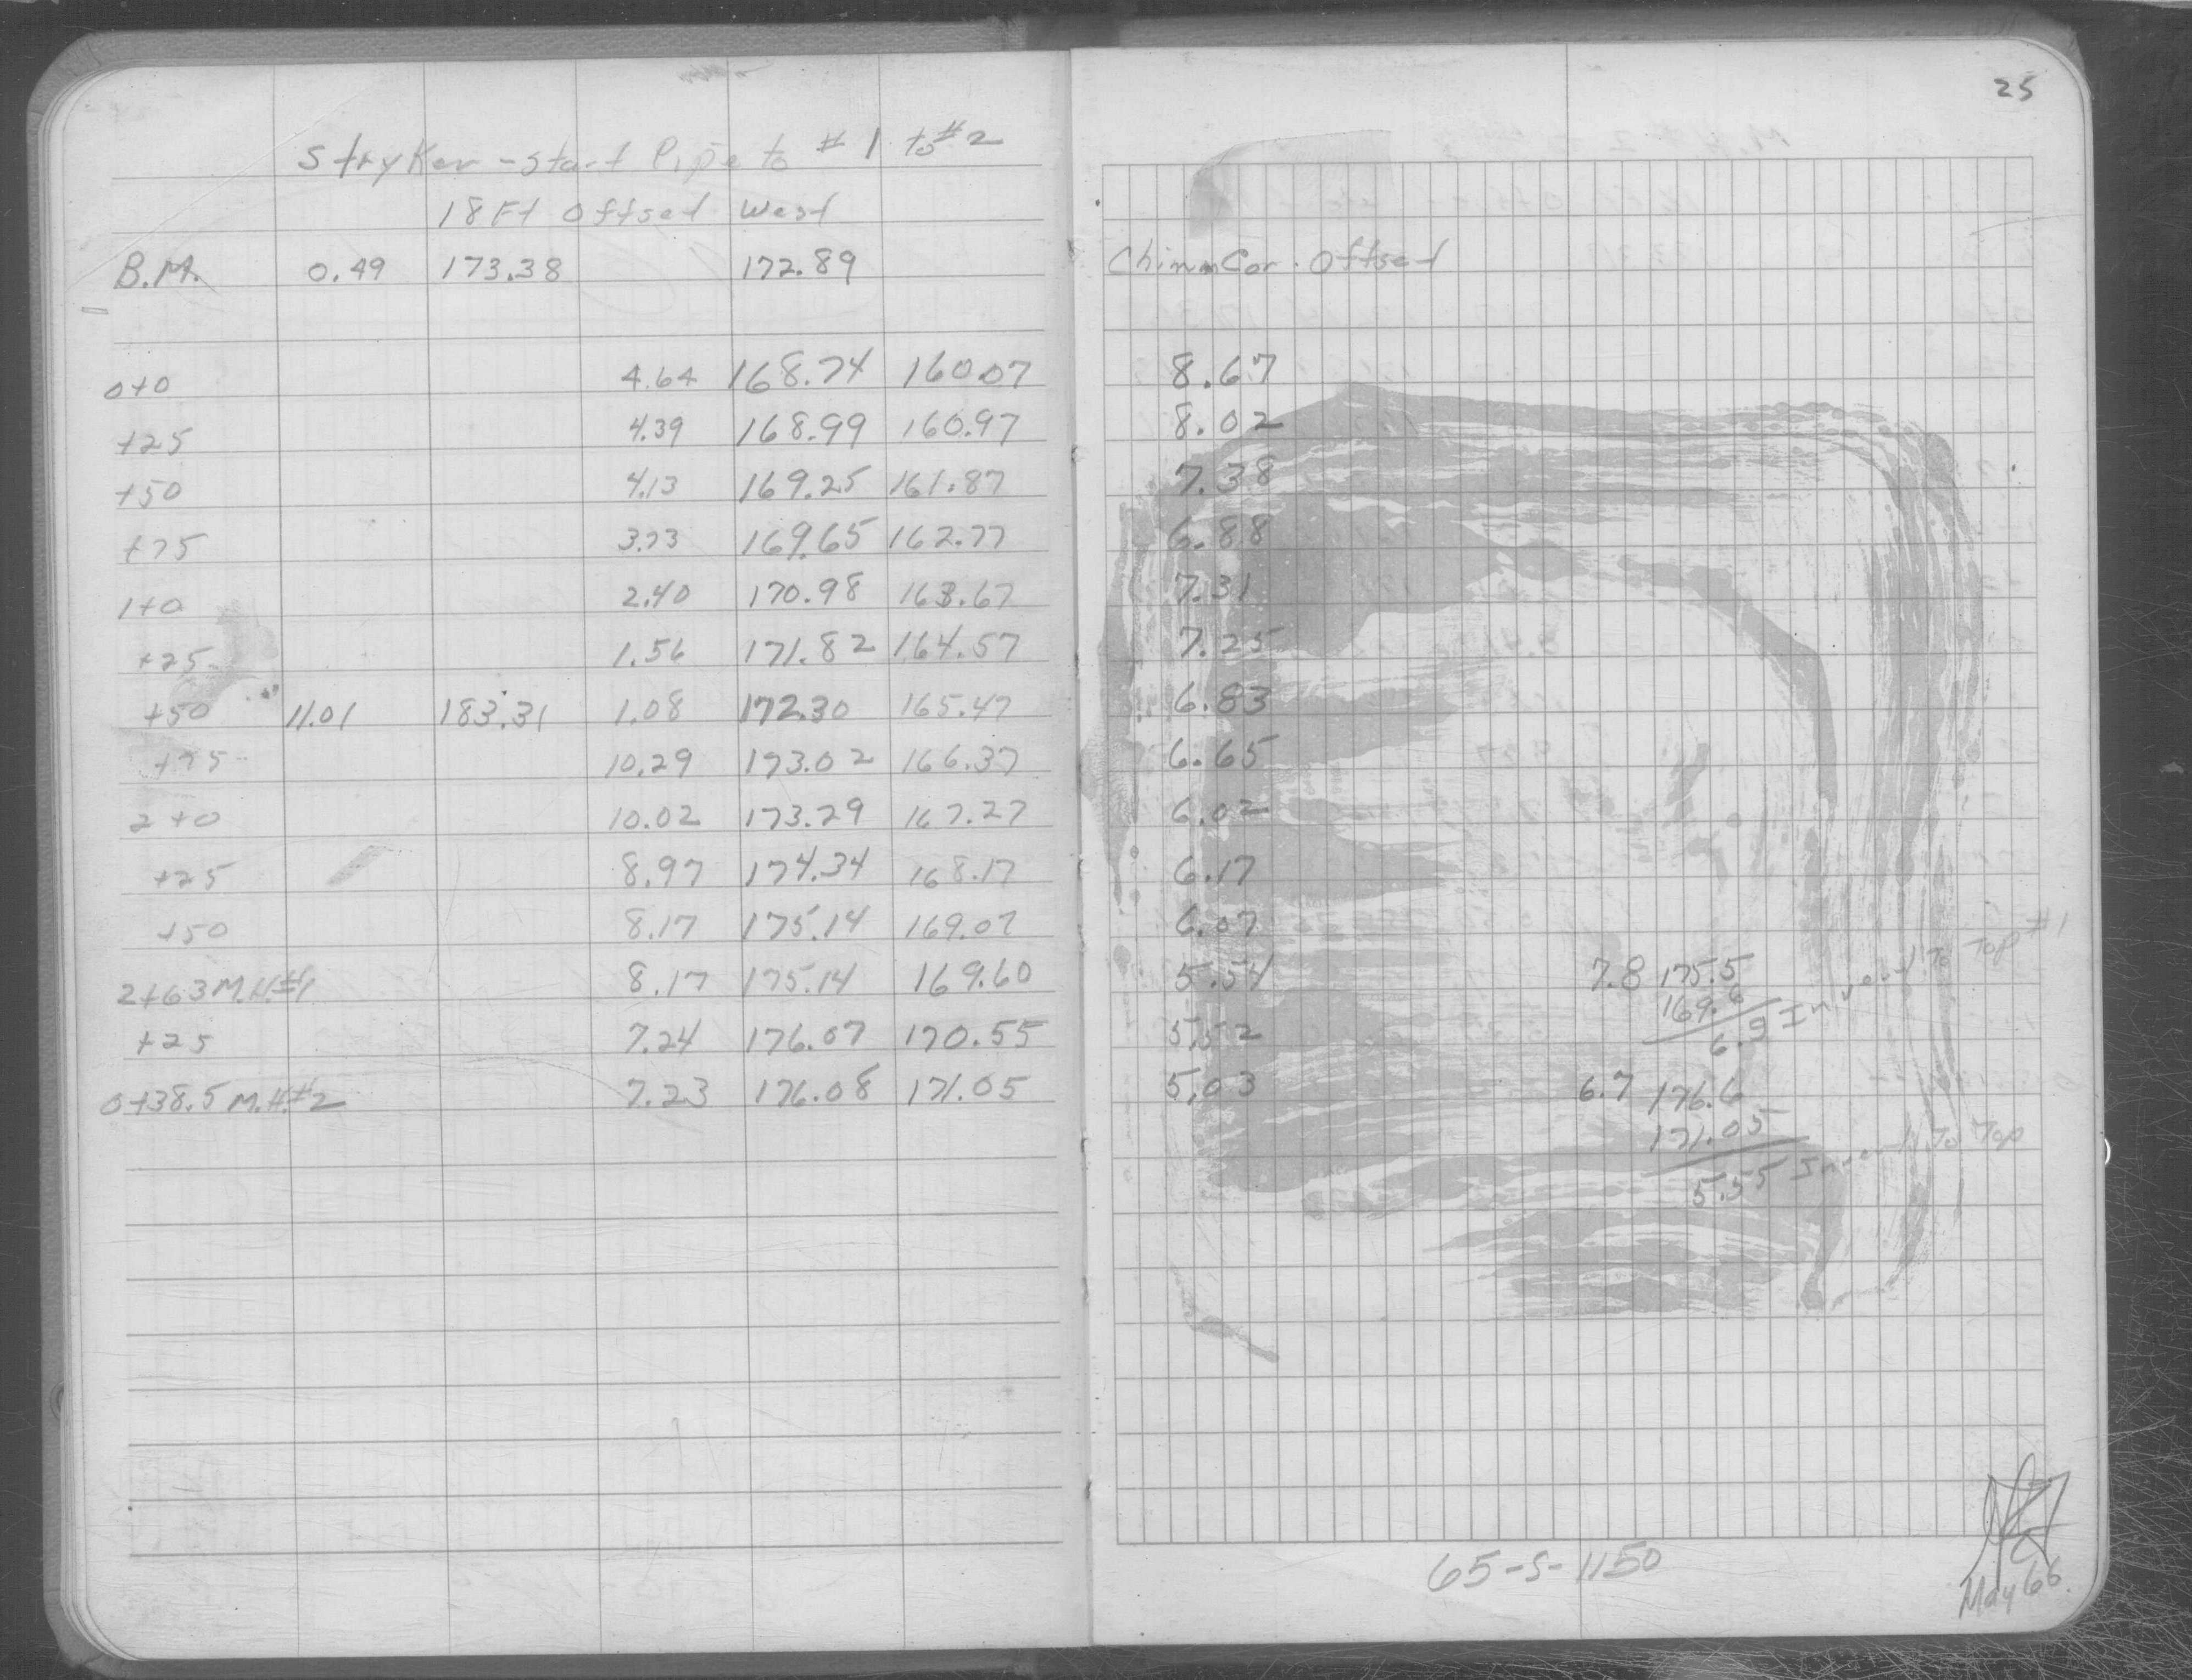 25
Stryker - start Pipe to #1 to #2
18 Ft Offset West
B.M. 0.49 173.38 172.89 Chimn Cor. Offset
0+0 4.64 168.74 160.07 8.67
+25 4.39 168.99 160.97 8.02
+50 4.13 169.25 161.87 7.38
+75 3.73 169.65 162.77 6.88
1+0 2.40 170.98 163.67 7.31
+25 1.56 171.82 164.57 7.25
+50 11.01 183.31 1.08 172.30 165.47 6.83
+75 10.29 173.02 166.37 6.65
2+0 10.02 173.29 167.27 6.02
+25 8.97 174.34 168.17 6.17
+50 8.17 175.14 169.07 6.07
2+63 M.H.#1 8.17 175.14 169.60 5.54 7.8 175.5
169.6
6.9 Invert To Top #1
+25 7.24 176.07 170.55 5.52
0+38.5 M.H.#2 7.23 176.08 171.05 5.03 6.7 176.6
171.05
5.55 Invert To Top
65-S-1150
May 66